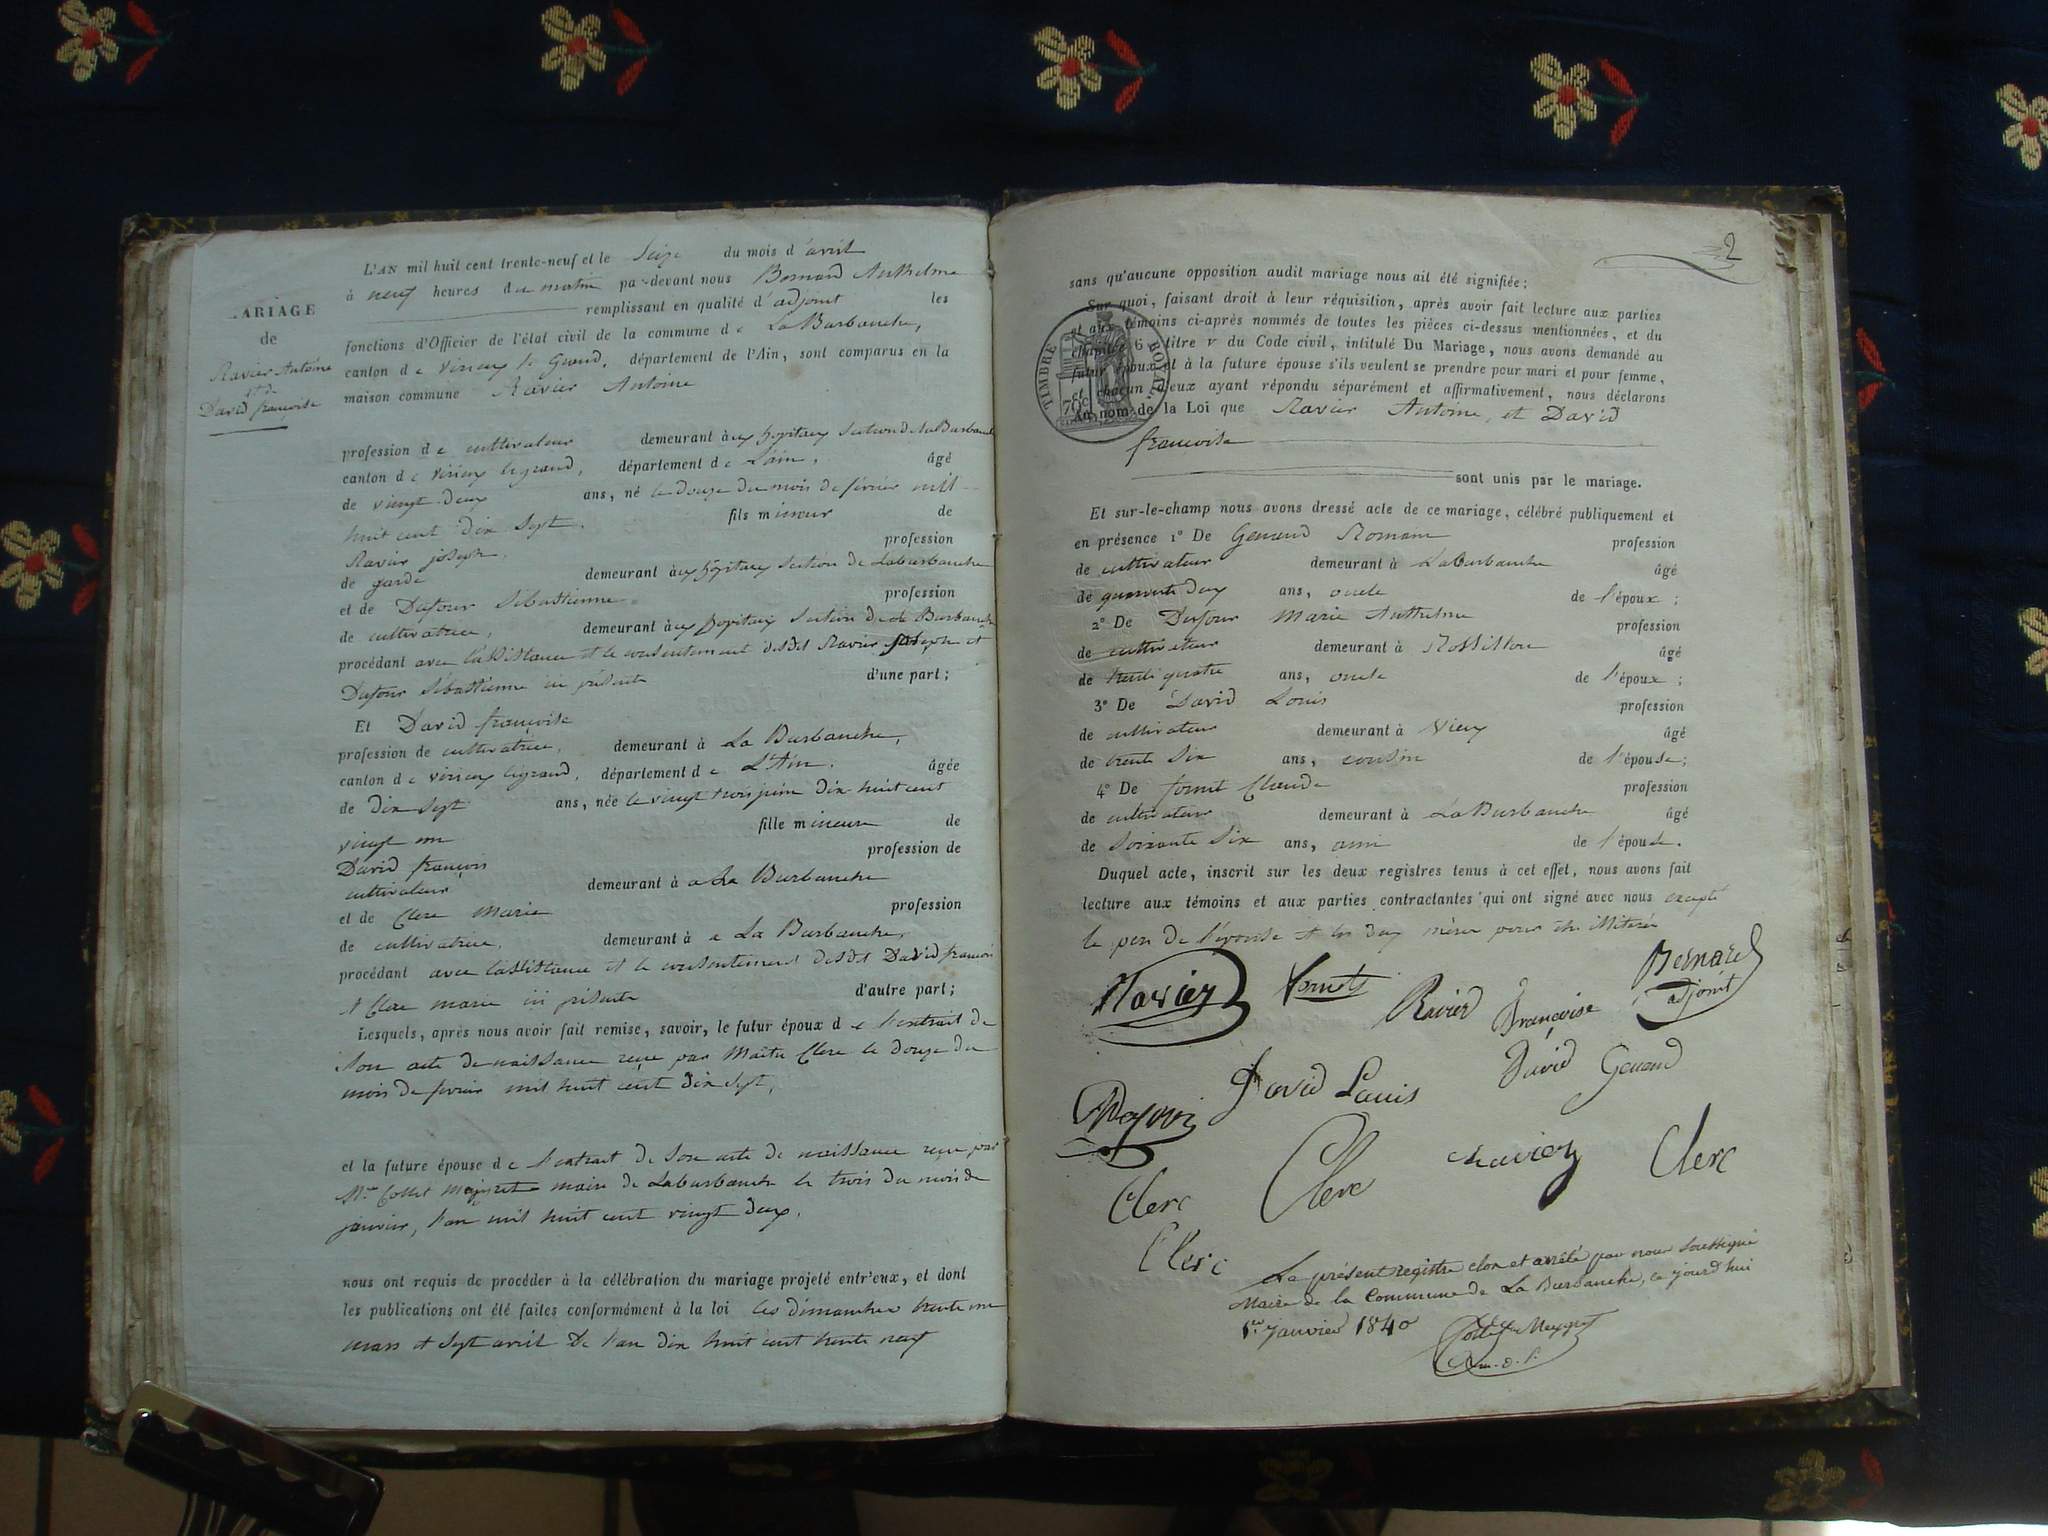 L'AN mil huit cent trente-neuf et le Seize du mois d'avril
à neuf heures du matin par-devant nous Bernard Anthelme
remplissant en qualité d'adjoint les
fonctions d'Officier de l'état civil de la commune de La Burbanche,
canton de virieux le Grand, département de l'Ain, sont comparus en la
maison commune Ravier Antoine
ARIAGE
de
Ravier Antoine
et de
David françoise
profession de cultivateur demeurant aux hopitaux Section de la Burbanche
canton de virieux legrand, département de L'ain, âgé
de vingt deux ans, né le douze du mois de février mil
huit cent dix Sept. fils mineur de
Ravier joseph, profession
de garde demeurant aux hôpitaux Section de Laburbanche
et de Dufour Sébastienne profession
de cultivatrice, demeurant aux hopitaux Section de la Burbanche
procédant avec l'assistance et le consentement desdts Ravier joseph et
Dufour Sébastienne ici présents d'une part;
Et David françoise
profession de cultivatrice, demeurant à La Burbanche,
canton de virieux legrand, département de L'Ain. âgée
de dix sept ans, née le vingt trois juin dix huit cent
vingt un fille mineure de
David françois profession de
cultivateur demeurant à La Burbanche
et de Clerc Marie profession
de cultivatrice, demeurant à La Burbanche,
procédant avec l'assistance et le consentement desdts David françois
et Clerc marie ici présents d'autre part;
Lesquels, après nous avoir fait remise, savoir, le futur époux de l'extrait de
Son acte de naissance reçu par Maître Clerc le douze du
mois de fevrier mil huit cent dix sept,
et la future épouse de l'extrait de Son acte de naissance reçu par
Mr Collet maire de Laburbanche le trois du mois de
janvier, l'an mil huit cent vingt deux.
nous ont requis de procéder à la célébration du mariage projeté entr'eux, et dont
les publications ont été faites conformément à la loi les dimanches trente un
mars et Sept avril de l'an dix huit cent trente neuf
2
sans qu'aucune opposition audit mariage nous ait été signifiée;
Sur quoi, faisant droit à leur réquisition, après avoir fait lecture aux parties
et aux témoins ci-après nommés de toutes les pièces ci-dessus mentionnées, et du
chapitre 6 titre v du Code civil, intitulé Du Mariage, nous avons demandé au
futur époux et à la future épouse s'ils veulent se prendre pour mari et pour femme,
et chacun d'eux ayant répondu séparément et affirmativement, nous déclarons
Au nom de la Loi que Ravier Antoine, et David
françoise
sont unis par le mariage.
TIMBRE ROYAL
70c
Et sur-le-champ nous avons dressé acte de ce mariage, célébré publiquement et
en présence 1° De Genend Romain profession
de cultivateur demeurant à La Burbanche âgé
de quarante deux ans, oncle de l'époux;
2° De Dufour Marie Anthelme profession
de cultivateur demeurant à Rossillon âgé
de trente quatre ans, oncle de l'époux;
3° De David Louis profession
de cultivateur demeurant à Vieux âgé
de trente Six ans, cousin de l'épouse;
4° De Claude profession
de cultivateur demeurant à La Burbanche âgé
de Soixante Six ans, ami de l'épouse.
Duquel acte, inscrit sur les deux registres tenus à cet effet, nous avons fait
lecture aux témoins et aux parties contractantes qui ont signé avec nous excepté
le père de l'épouse et les deux mères pour être illitérés
Ravier Ravier Françoise Bernard
adjoint
David Louis David Genend
Clerc Clerc Ravier Clerc
Clerc
Le présent registre clos et arrêté par nous Soussigné
Maire de la Commune de La Burbanche, ce jourd'hui
1er janvier 1840